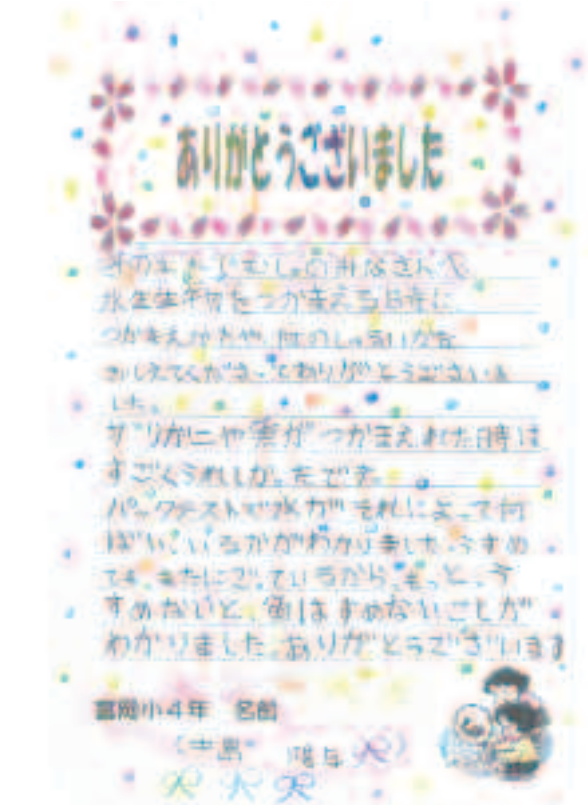 ありがとうございました
みなさんへ
水生生物をつかまえる時に
つかまえかたや、何のしゅるいかを
おしえてくださってありがとうございま
した。
ザリガニや魚がつかまえれた時は
すごくうれしかったです。
パックテストで水が それによって何
ばい いるかがわかりました。うすめ
ても、まだにごっているから、もっと、う
すめないと、魚はすめないことが
わかりました。ありがとうございます
富岡小4年 名前